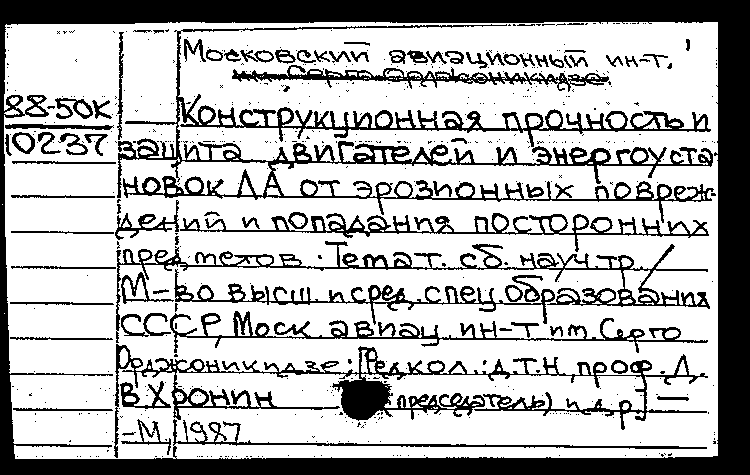 Московский авиационный ин-т.
им. Серго Орджоникидзе.
88-50К
10237
Конструкционная прочность и
защита двигателей и энергоуста-
новок ЛА от эрозионных повреж-
дений и попадания посторонних
предметов : Темат. сб. науч. тр. /
М-во высш. и сред. спец. образования
СССР, Моск. авиац. ин-т им. Серго
Орджоникидзе ; [Редкол. : д.т.н., проф. Д.
В. Хронин (председатель) и др.] —
-М., 1987